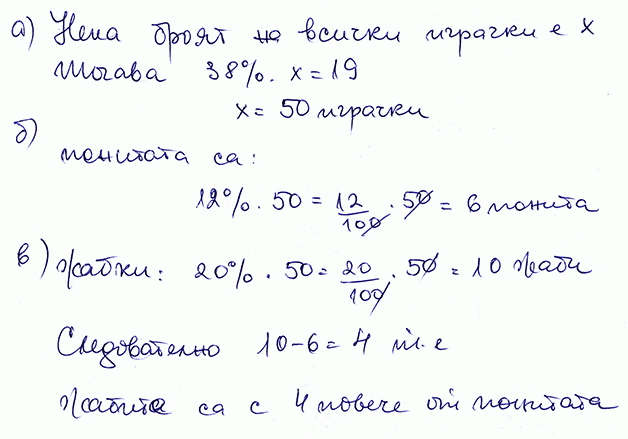 а) Нека броят на всички играчки е x
Тогава 38%. x = 19
x = 50 играчки
б)
понитата са:
12% . 50 = 12/100 . 50 = 6 понита
в) Жабки: 20% . 50 = 20/100 . 50 = 10 жаби
Следователно 10-6 = 4 т.е
Жабите са с 4 повече от понитата